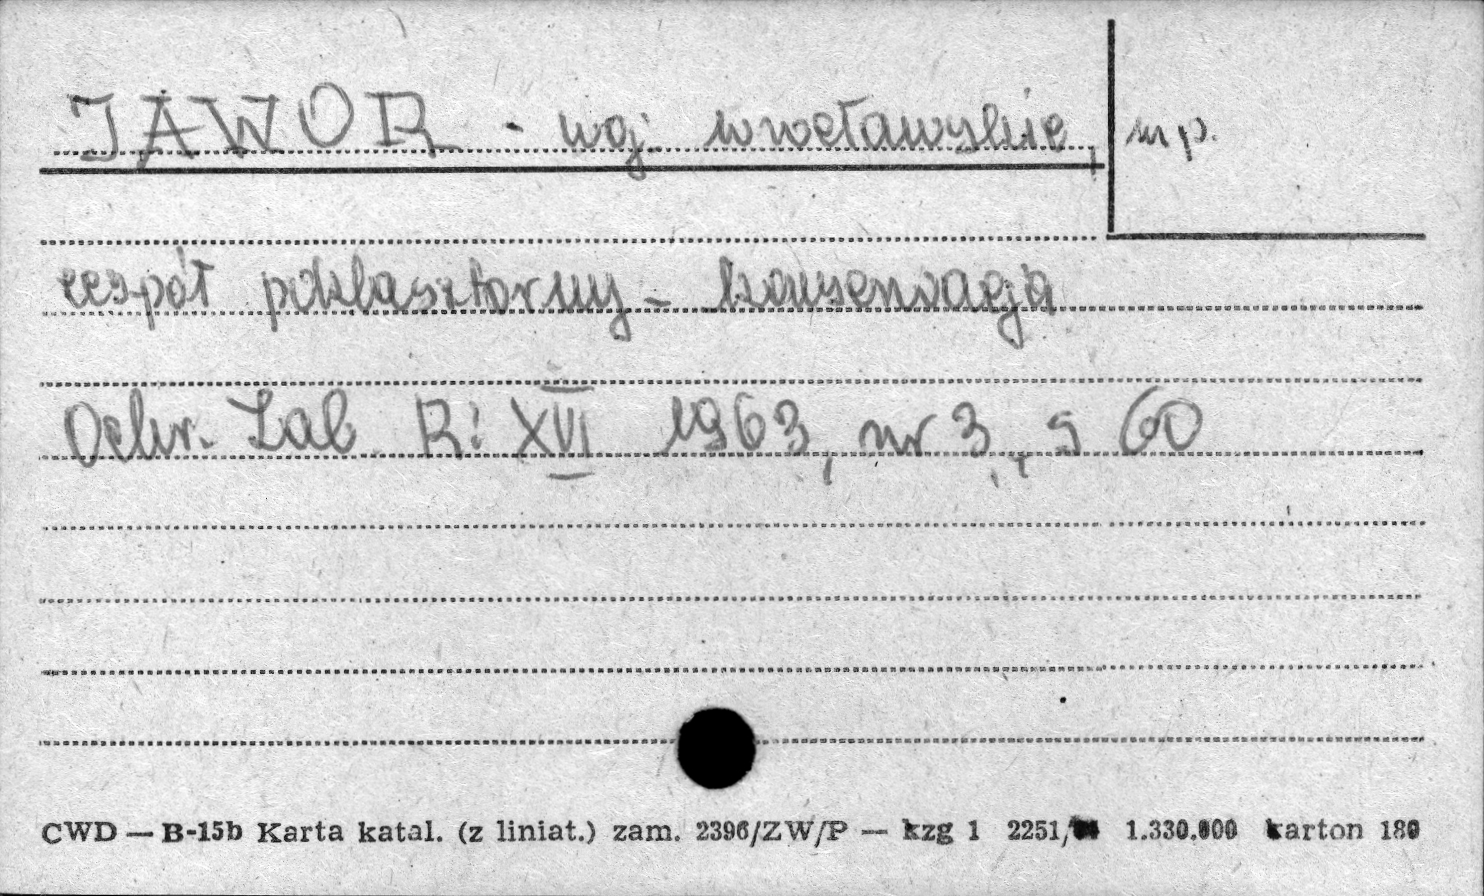 JAWOR - woj. wrocławskie, mp.
zespół poklasztorny - konserwacja
Ochr. Zab. R: XVI 1963, nr 3, s 60
CWD — B-15b Karta katal. (z liniat.) zam. 2396/ZW/P — kzg 1 2251/ 1.330.000 karton 180